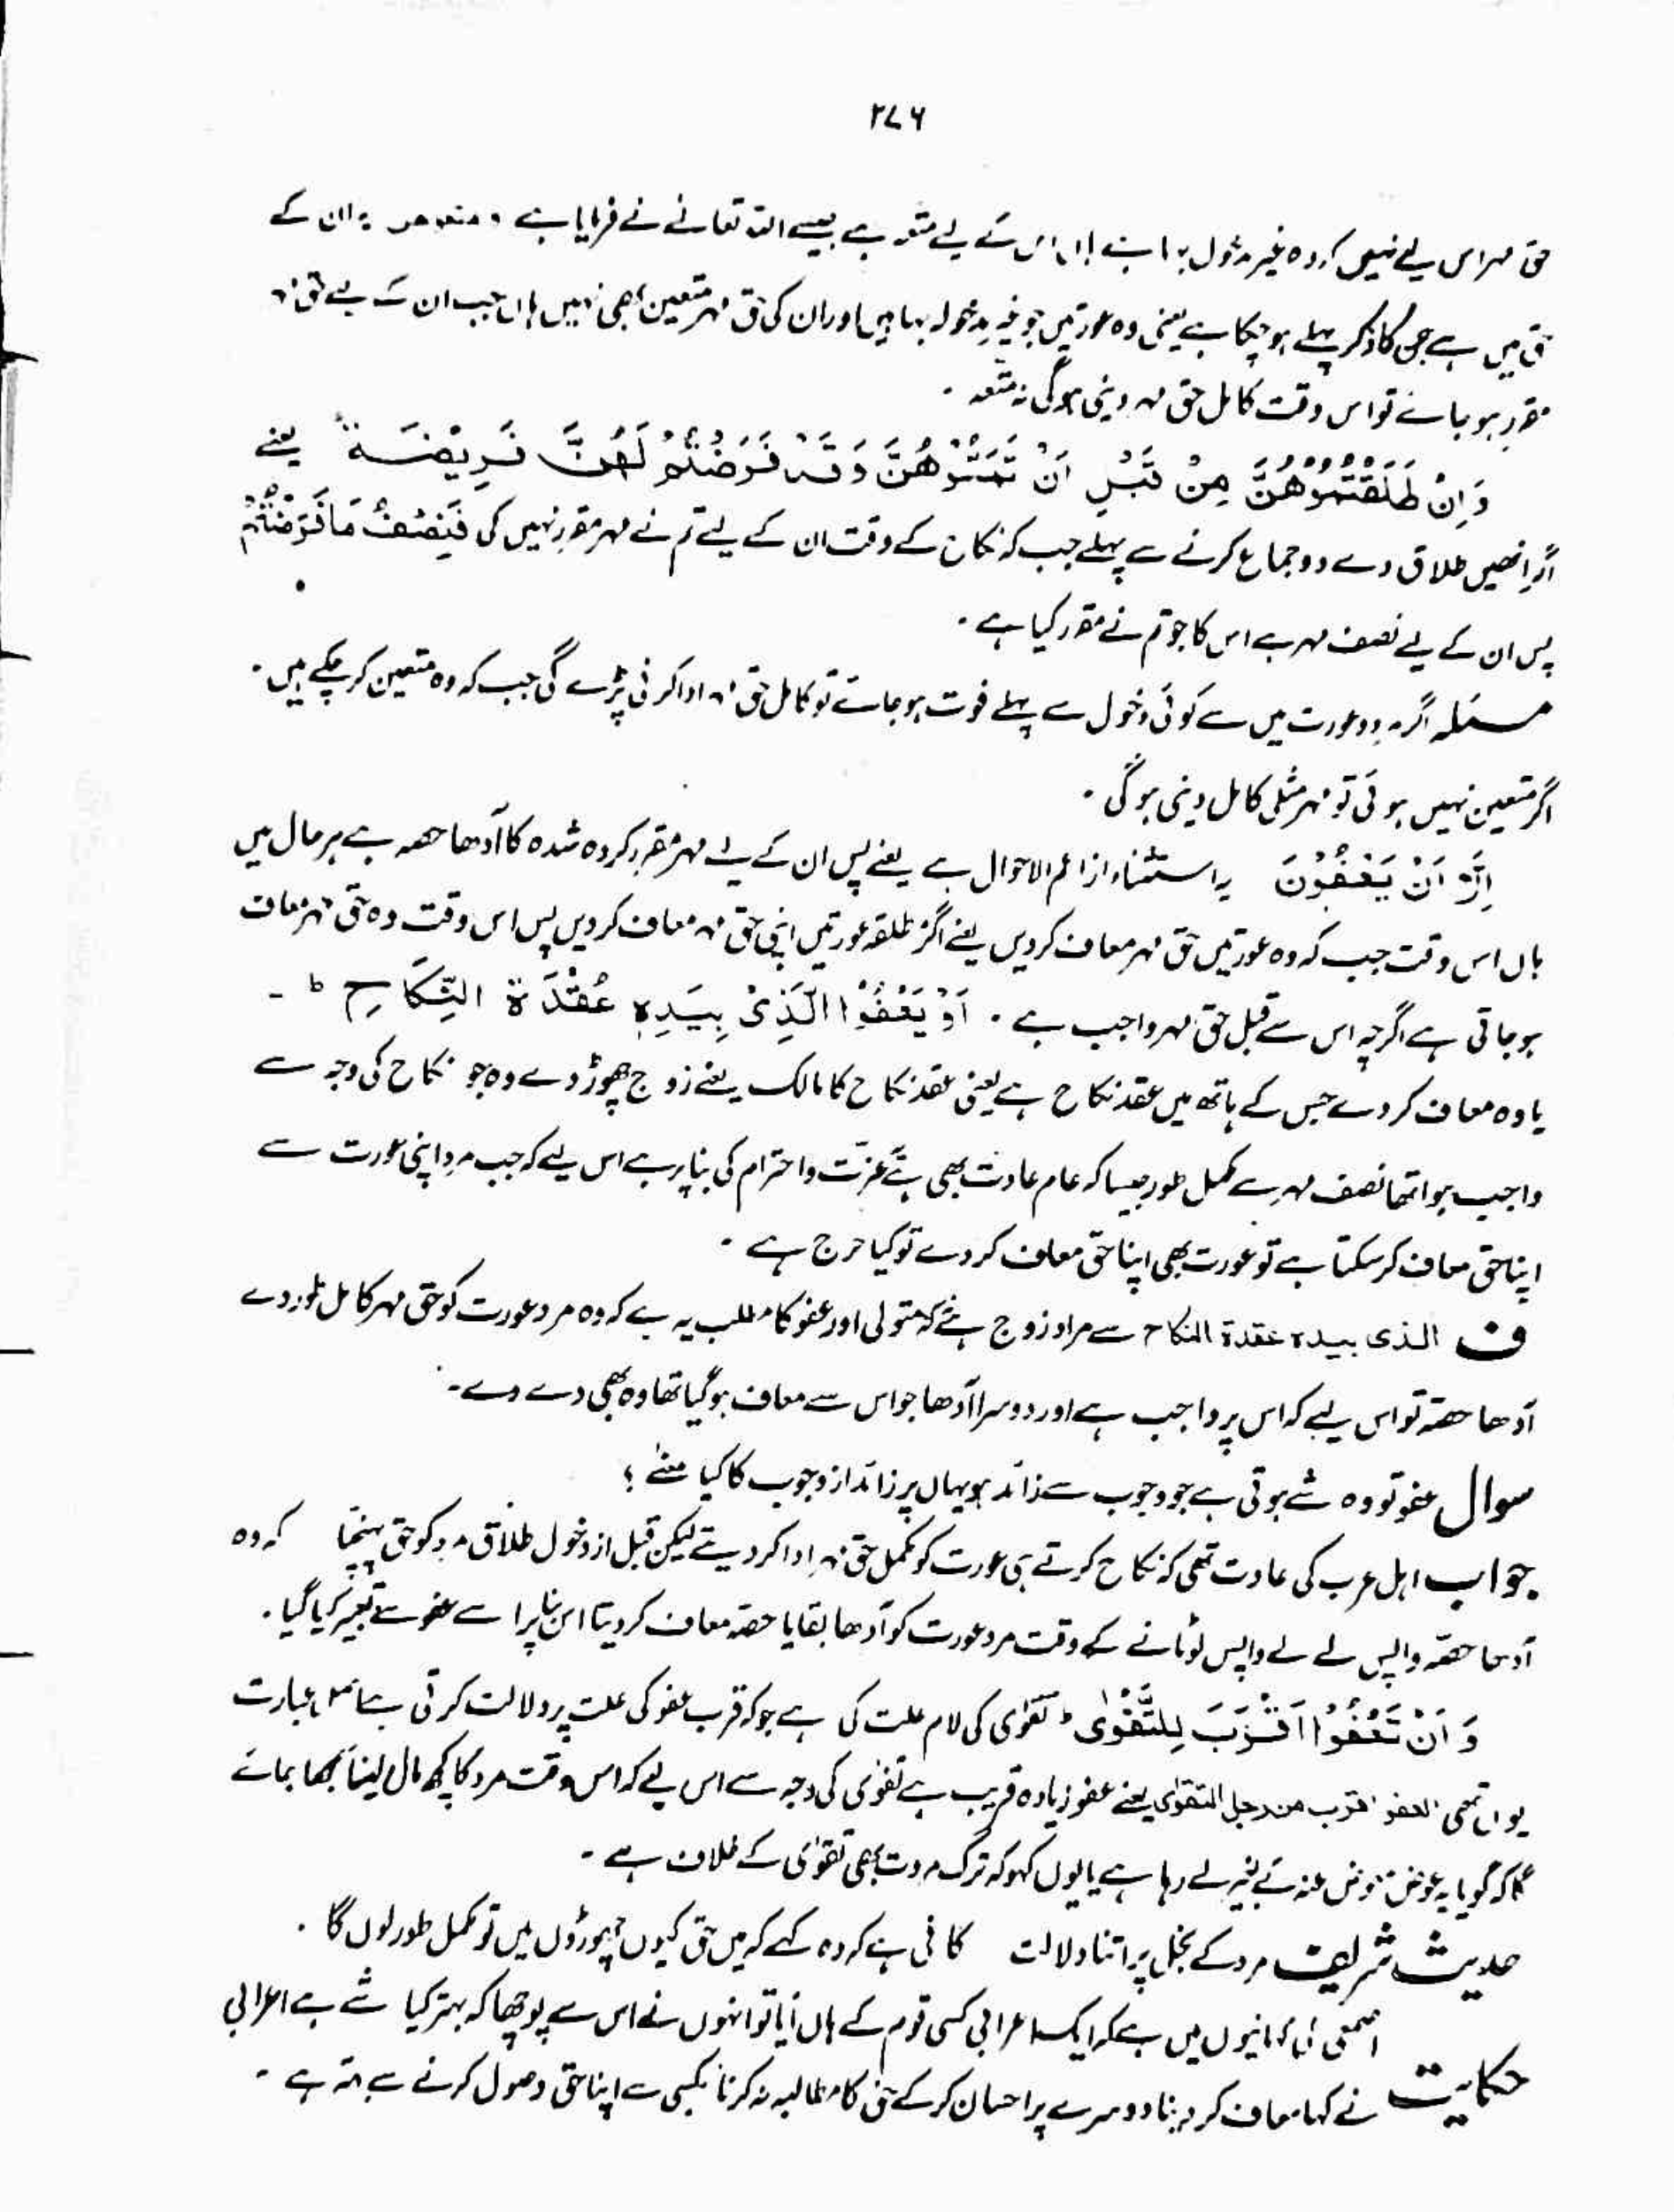 ۲۷۶
حق مہر اس لیے نہیں کہ وہ غیر مدخول بہا ہے ہاں اس کے لیے متعہ ہے جیسے اللہ تعالےٰ نے فرمایا ہے ومتعوھن یہ ان کے
حق میں ہے جس کا ذکر پہلے ہو چکا ہے یعنی وہ عورتیں جو غیر مدخولہ بہا ہیں اور ان کی حق مہر متعین بھی نہیں ہاں جب ان کے لیے حق مہر
مقرر ہو جائے تو اس وقت کامل حق مہر دینی ہوگی نہ متعہ ۔
وَاِنْ طَلَّقْتُمُوْهُنَّ مِنْ قَبْلِ اَنْ تَمَسُّوْهُنَّ وَقَدْ فَرَضْتُمْ لَهُنَّ فَرِيْضَةً یعنے
اگر انھیں طلاق دے دو جماع کرنے سے پہلے جب کہ نکاح کے وقت ان کے لیے تم نے مہر مقرر نہیں کی فَنِصْفُ مَا فَرَضْتُمْ
پس ان کے لیے نصف مہر ہے اس کا جو تم نے مقرر کیا ہے ۔
مسئلہ اگر مرد و عورت میں سے کوئی دخول سے پہلے فوت ہو جائے تو کامل حق مہر ادا کرنی پڑے گی جب کہ وہ متعین کر چکے ہیں ۔
اگر متعین نہیں ہوئی تو مہر مثلی کامل دینی ہوگی ۔
اِلَّا اَنْ يَعْفُوْنَ یہ استثناء از اعم الاحوال ہے یعنے پس ان کے لیے مہر مقرر کردہ شدہ کا آدھا حصہ ہے ہر حال میں
ہاں اس وقت جب کہ وہ عورتیں حق مہر معاف کر دیں یعنے اگر مطلقہ عورتیں اپنی حق مہر معاف کر دیں پس اس وقت وہ حق مہر معاف
ہو جاتی ہے اگرچہ اس سے قبل حق مہر واجب ہے ۔ اَوْ يَعْفُوَا الَّذِىْ بِيَدِهٖ عُقْدَةُ النِّكَاحِ ط ۔
یا وہ معاف کر دے جس کے ہاتھ میں عقد نکاح ہے یعنی عقد نکاح کا مالک یعنے زوج چھوڑ دے وہ جو نکاح کی وجہ سے
واجب ہوا تھا نصف مہر سے مکمل طور جیسا کہ عام عادت بھی ہے عزت و احترام کی بنا پر ہے اس لیے کہ جب مرد اپنی عورت سے
اپنا حق معاف کر سکتا ہے تو عورت بھی اپنا حق معاف کر دے تو کیا حرج ہے ۔
ف الذی بیدہ عقدۃ النکاح سے مراد زوج ہے نہ کہ متولی اور عفو کا مطلب یہ ہے کہ وہ مرد عورت کو حق مہر کامل طور دے
آدھا حصہ تو اس لیے کہ اس پر واجب ہے اور دوسرا آدھا جو اس سے معاف ہو گیا تھا وہ بھی دے دے ۔
سوال عفو تو وہ شے ہوتی ہے جو وجوب سے زائد ہو یہاں پر زائد از وجوب کا کیا معنے ؟
جواب اہل عرب کی عادت تھی کہ نکاح کرتے ہی عورت کو مکمل حق مہر ادا کر دیتے لیکن قبل از دخول طلاق مرد کو حق پہنچتا کہ وہ
آدھا حصہ واپس لے لے واپس لوٹانے کے وقت مرد عورت کو آدھا بقایا حصہ معاف کر دیتا اس بنا پر اسے عفو سے تعبیر کیا گیا ۔
وَ اَنْ تَعْفُوْا اَقْرَبُ لِلتَّقْوٰى ط تقوٰی کی لام علت کی ہے جو کہ قرب عفو کی علت پر دلالت کرتی ہے اصل عبارت
یوں تھی العفو اقرب من اجل التقوٰی یعنے عفو زیادہ قریب ہے تقوٰی کی وجہ سے اس لیے کہ اس وقت مرد کا کچھ مال لینا سمجھا جائے
گا کہ گویا یہ عوض معوض عنہ کے بغیر لے رہا ہے یا یوں کہو کہ ترک مروت بھی تقوٰی کے خلاف ہے ۔
حدیث شریف مرد کے بخل پر اتنا دلالت کافی ہے کہ وہ کہے کہ میں حق کیوں چھوڑوں میں تو مکمل طور لوں گا ۔
اصمعی کی کہانیوں میں ہے کہ ایک اعرابی کسی قوم کے ہاں آیا تو انہوں نے اس سے پوچھا کہ بہتر کیا شے ہے اعرابی
حکایت نے کہا معاف کر دینا دوسرے پر احسان کر کے حق کا مطالبہ نہ کرنا کسی سے اپنا حق وصول کرنے سے بہتر ہے ۔